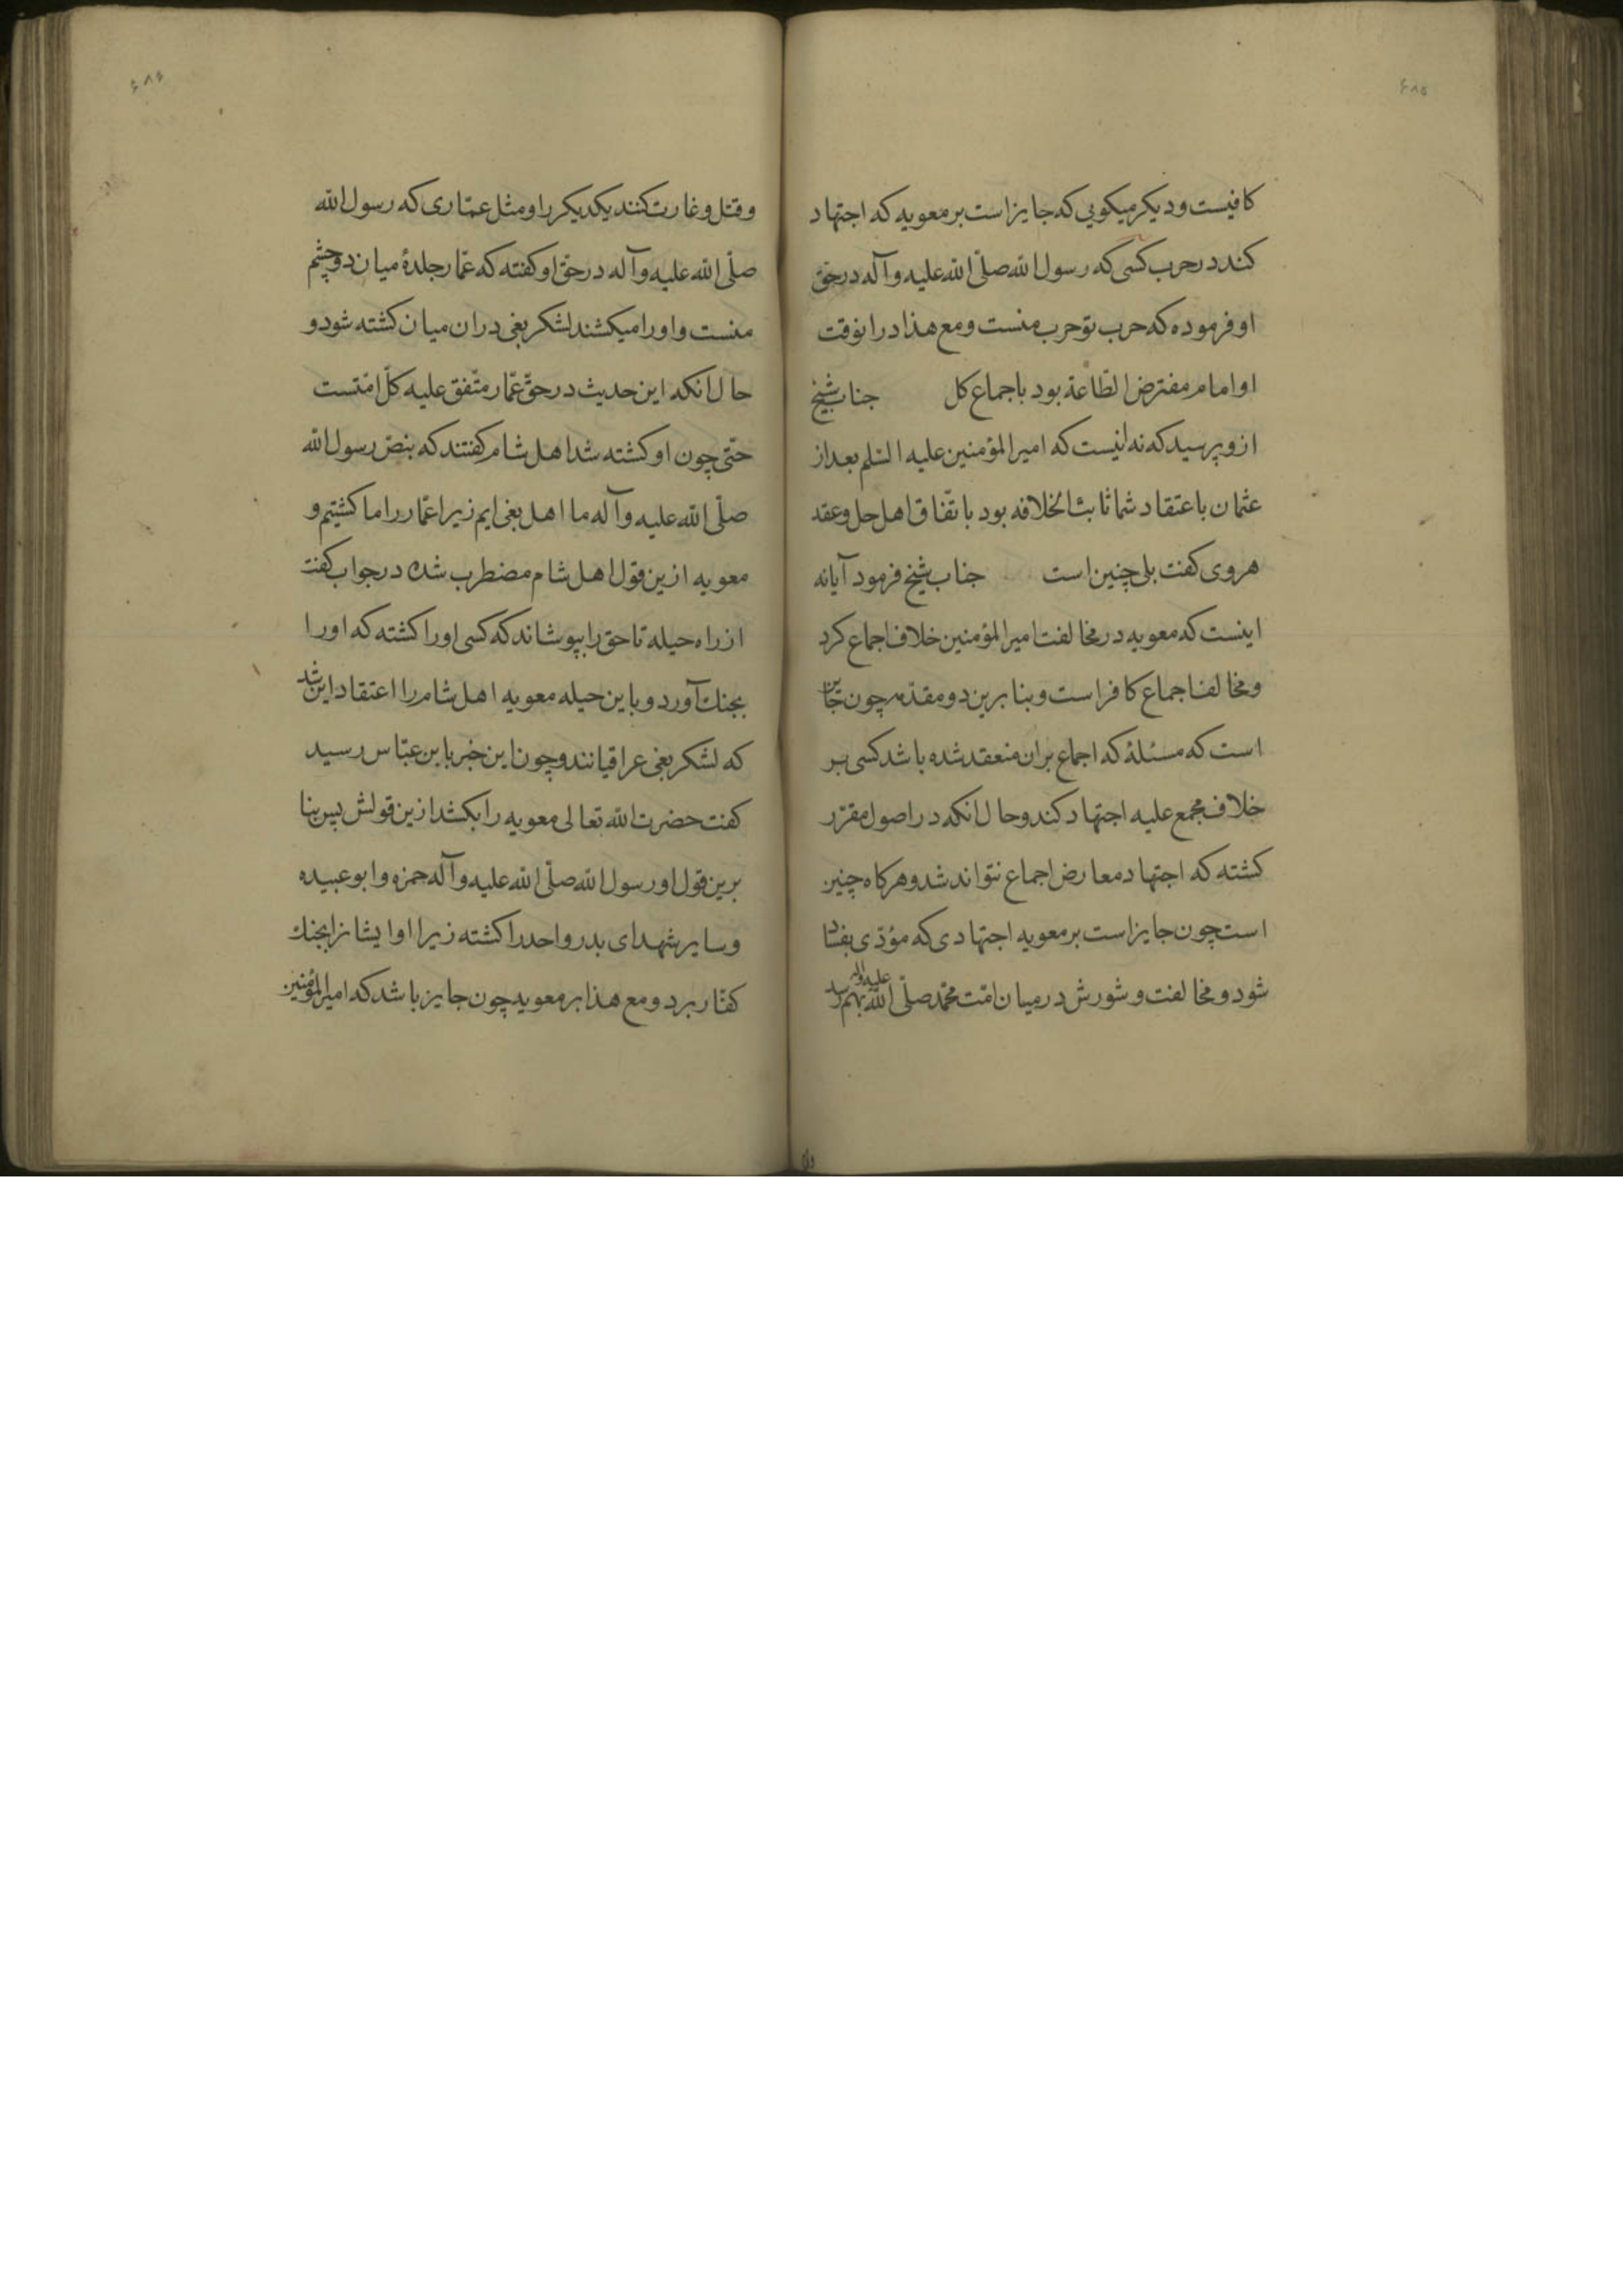 ۶۸۵
کافیست و دیکر میکویی که جایز است بر معویه که اجتهاد
کند در حرب کسی که رسول الله صلّی الله علیه وآله در حق
او فرموده که حرب تو حرب منست و مع هذا درانوقت
او امام مفترض الطّاعة بود باجماع کل جناب شیخ
ازو پرسید که نه انیست که امیرالمؤمنین علیه السّلم بعد از
عثمان باعتقاد شما ثابت الخلافه بود باتّفاق اهل حل وعقد
هروی کفت بلی چنین است جناب شیخ فرمود آیا نه
اینست که معویه در مخالفت امیرالمؤمنین خلاف اجماع کرد
ومخالف اجماع کافر است و بنا برین دو مقدّمه چون جایز
است که مسئلهٔ که اجماع بران منعقد شده باشد کسی بر
خلاف مجمع علیه اجتهاد کند و حال انکه در اصول مقرّر
کشته که اجتهاد معارض اجماع نتواند شد و هرکاه چنین
است چون جایز است بر معویه اجتهادی که مؤدّی بفساد
شود و مخالفت و شورش در میان امّت محمّد صلّی الله علیه وآله بهم رسد
۶۸۶
وقتل و غارت کنند یکدیکر را و مثل عمّاری که رسول الله
صلّی الله علیه وآله در حق او کفته که عمّار جلدهٔ میان دو چشم
منست و اورا میکشند لشکر بغی دران میان کشته شود و
حال انکه این حدیث در حقّ عمّار متّفق علیه کلّ امّتست
حتّی چون او کشته شد اهل شام کفتند که بنصّ رسول الله
صلّی الله علیه وآله ما اهل بغی ایم زیرا عمّار را ما کشتیم و
معویه ازین قول اهل شام مضطرب شده در جواب کفت
از راه حیله تا حق را بپوشاند که کسی اورا کشته که اورا
بجنك آورد و باین حیله معویه اهل شام را اعتقاد این شد
که لشکر بغی عراقیانند و چون این خبر بابن عبّاس رسید
کفت حضرت الله تعالی معویه را بکشد ازین قولش پس بنا
برین قول او رسول الله صلّی الله علیه وآله حمزه و ابو عبیده
وسایر شهدای بدر و احد را کشته زیرا او ایشانرا بجنك
کفّار برد و مع هذا بر معویه چون جایز باشد که امیرالمؤمنین